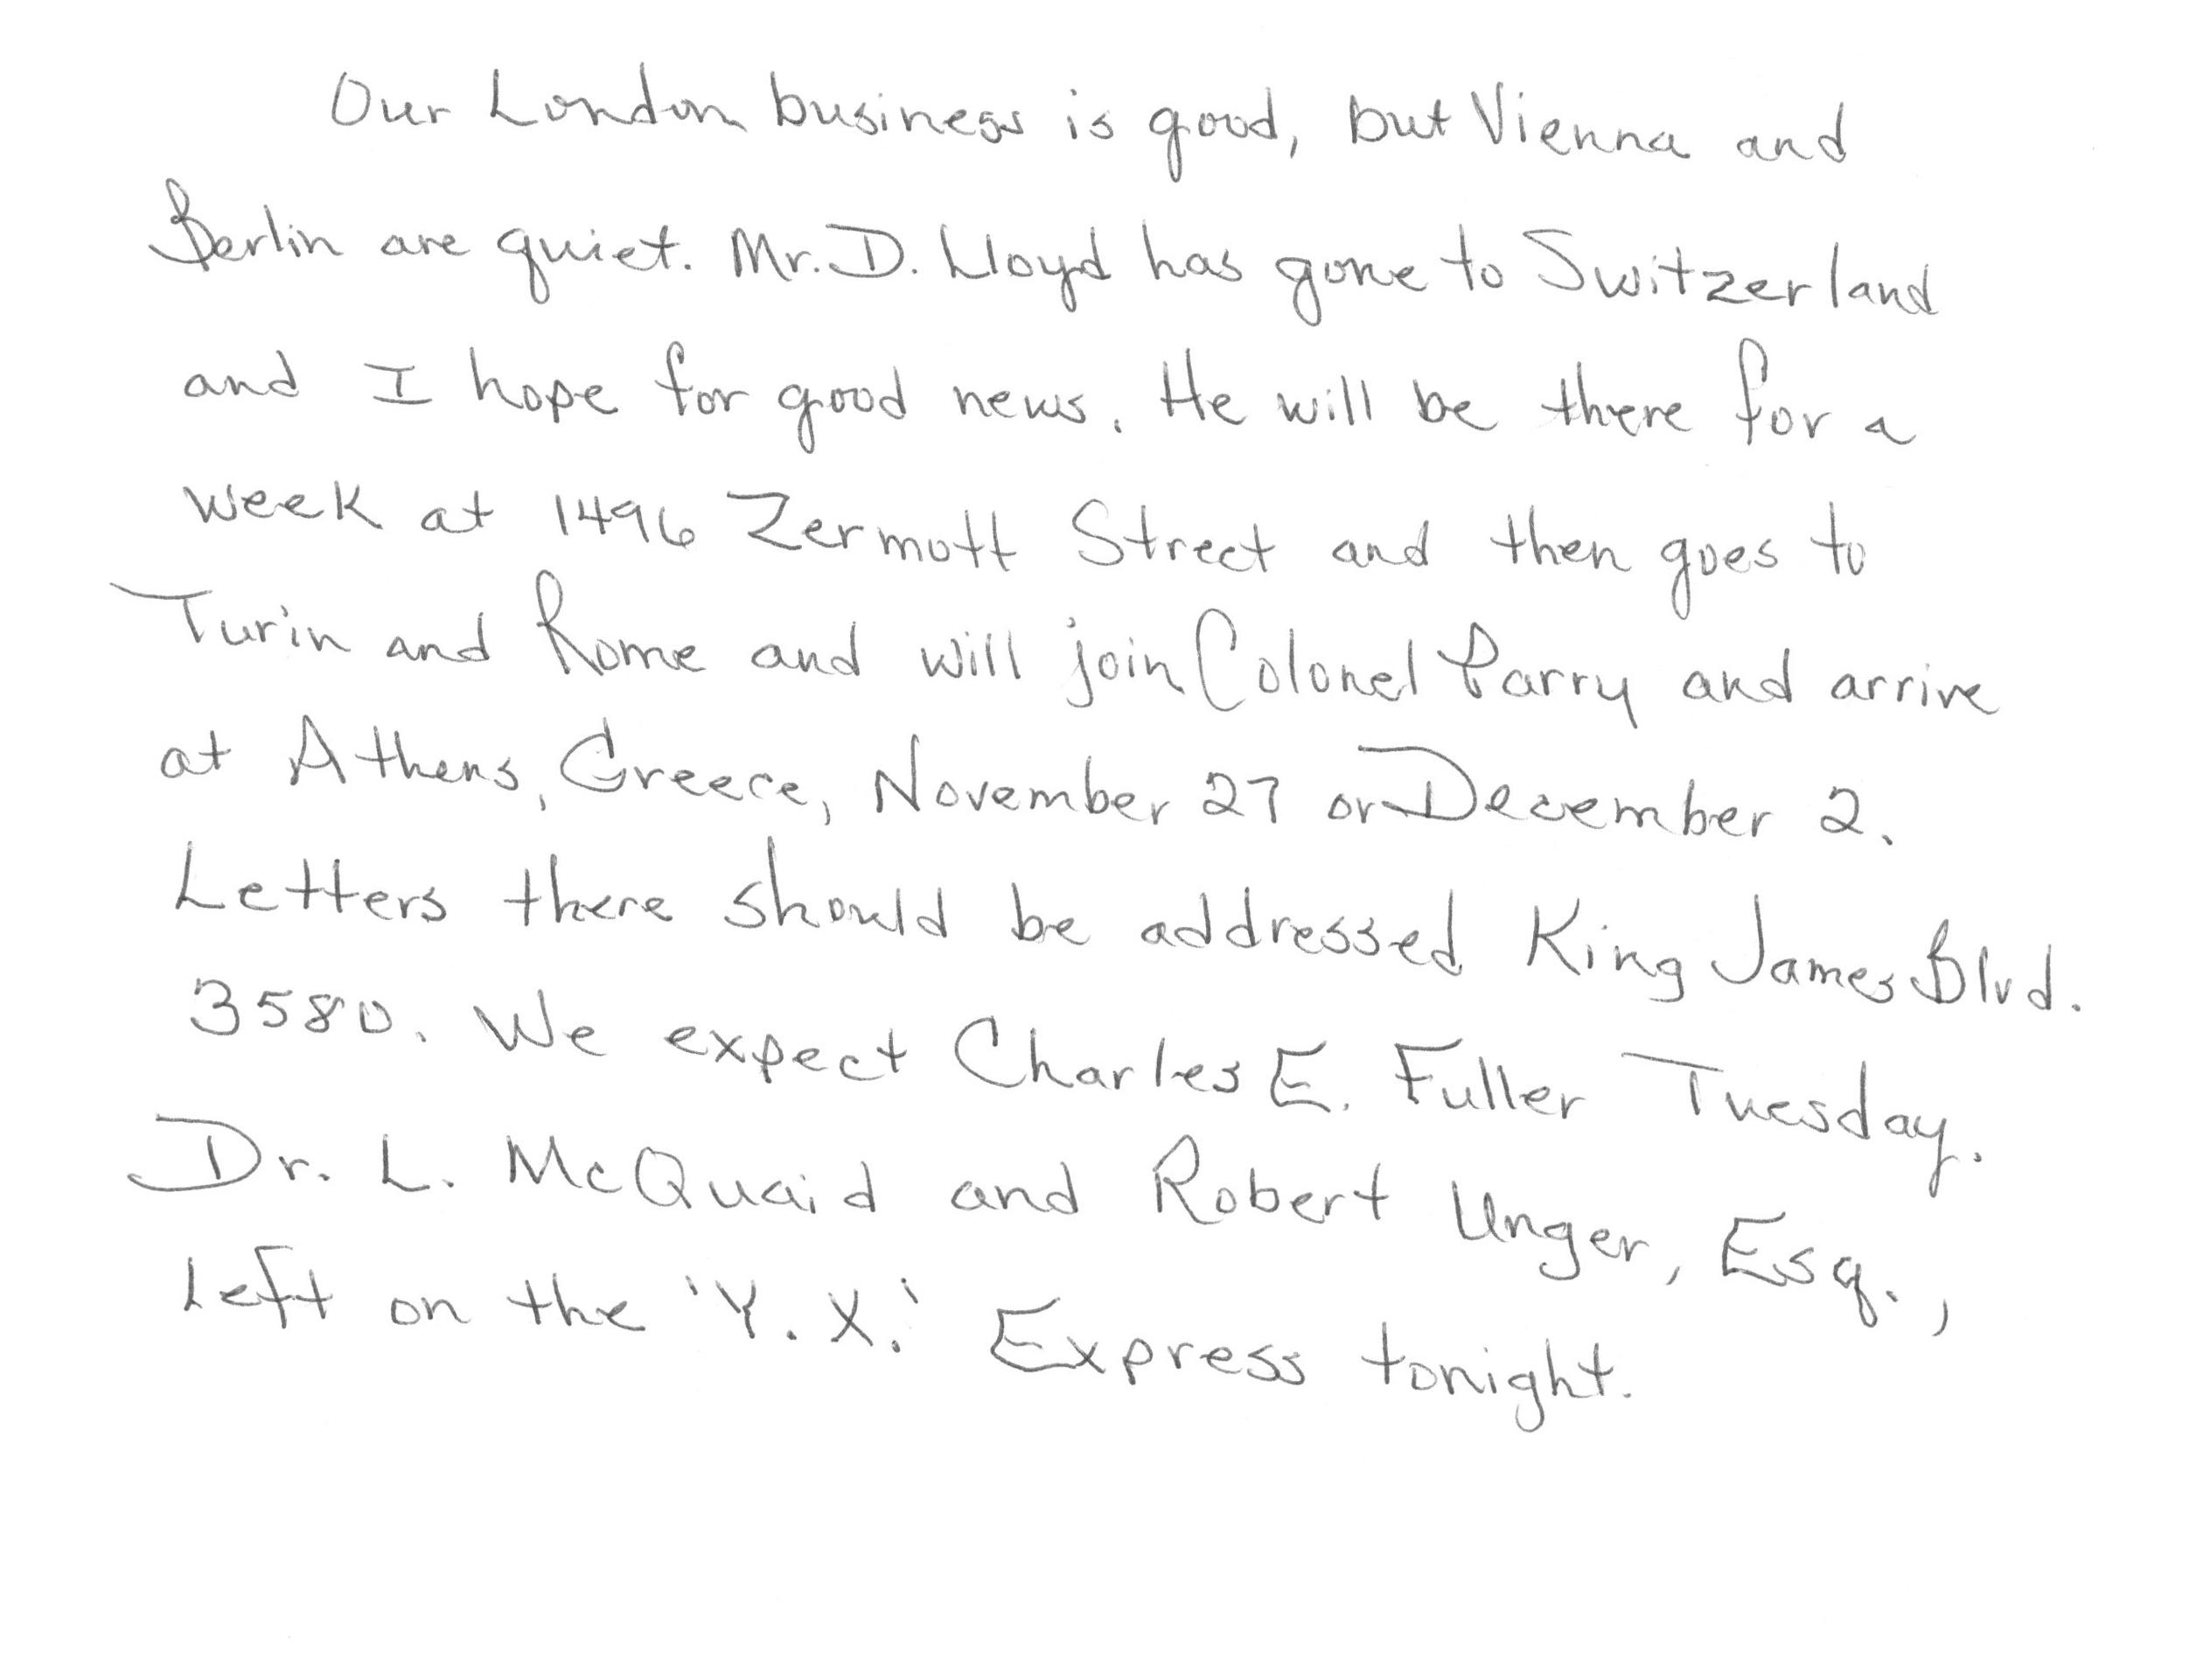 Our London business is good, but Vienna and
Berlin are quiet. Mr. D. Lloyd has gone to Switzerland
and I hope for good news. He will be there for a
week at 1496 Zermott Street and then goes to
Turin and Rome and will join Colonel Parry and arrive
at Athens, Greece, November 27 or December 2.
Letters there should be addressed King James Blvd.
3580. We expect Charles E. Fuller Tuesday.
Dr. L. McQuaid and Robert Unger, Esq.,
left on the 'Y. X.' Express tonight.